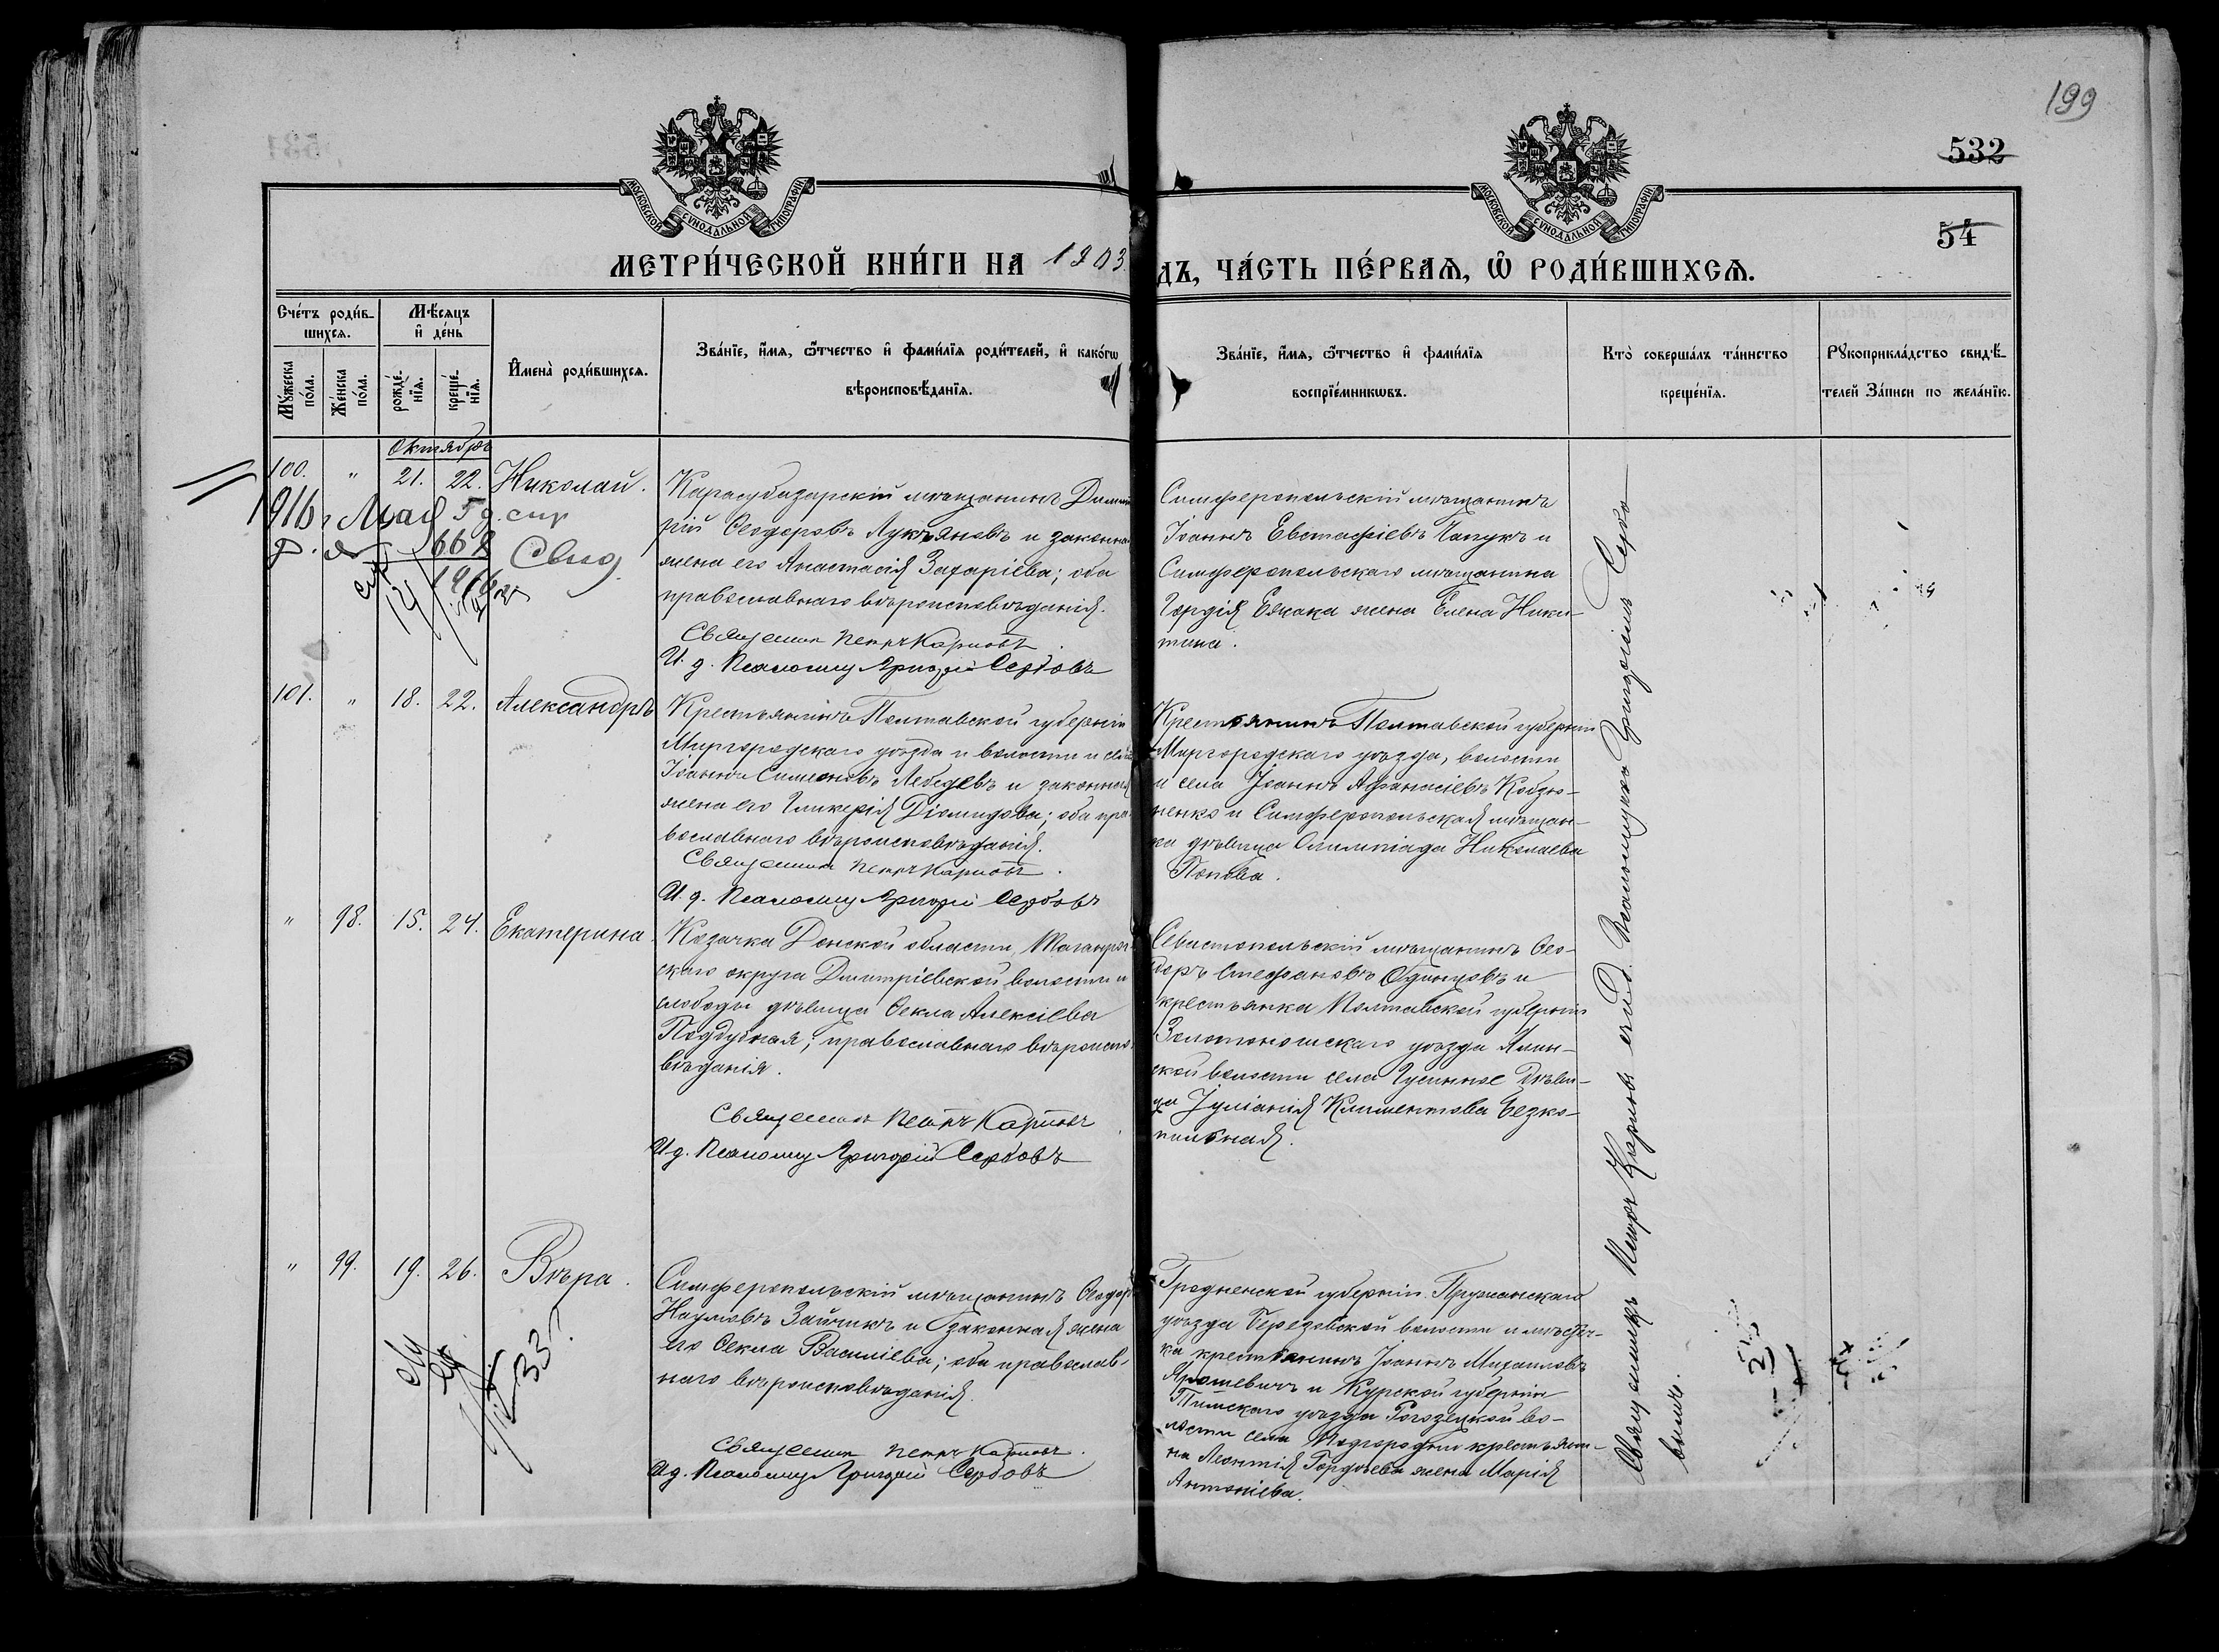 199
532
54
МОСКОВСКОЙ СѴНОДАЛЬНОЙ ТИПОГРАФІИ
МОСКОВСКОЙ СѴНОДАЛЬНОЙ ТИПОГРАФІИ
МЕТРИ́ЧЕСКОЙ КНИ́ГИ НА 1903
ДЪ, ЧА́СТЬ ПЕ́РВАЯ, Ѿ РОДИ́ВШИХСЯ.
Сче́тъ роди́в-
шихся.
Мѣ́сяцъ
и҆ де́нь
Мꙋ́жеска
по́ла.
Же́нска
по́ла.
рожде́-
нїя.
креще́-
нїя.
И҆мена̀ роди́вшихся.
Зва́нїе, и҆́мя, ѻ҆́тчество и҆ фами́лїя роди́телей, и҆ како́гѡ
вѣроисповѣ́данїя.
Зва́нїе, и҆́мя, ѻ҆́тчество и҆ фами́лїя
воспрїе́мникѡвъ.
Кто̀ соверша́лъ та́инство
креще́нїя.
Рꙋкоприкла́дство свидѣ́-
телей За́писи по жела́нїю.
Октябрь
100. " 21. 22. Николай.
Карасубазарскій мѣщанинъ Димит
рій Ѳеодоровъ Лукьяновъ и законна
жена его Анастасія Захаріева; оба
православнаго вѣроисповѣданія.
Священник Петръ Карповъ.
И. д. Псаломщ Григорій Сербовъ
Симферопольскій мѣщанинъ
Іоаннъ Евстафіевъ Чапукъ и
Симферопольскаго мѣщанина
Гордія Ежака жена Елена Ники-
тина.
1916 г Мая 5 д.
668
1916
101. " 18. 22. Александръ
Крестьянинъ Полтавской губерніи
Миргородскаго уѣзда и волости и села
Іоаннъ Симеоновъ Лебедевъ и законная
жена его Гликерія Діомидова; оба пра-
вославнаго вѣроисповѣданія.
Священник Петръ Карповъ.
И. д. Псаломщ Григорій Сербовъ
Крестьянинъ Полтавской губерніи
Миргородскаго уѣзда, волости
и села Іоаннъ Афанасіевъ Кобзо-
ненко и Симферопольская мѣщан-
ка дѣвица Олимпіада Николаева
Попова.
" 98. 15. 24. Екатерина.
Козачка Донской области, Таганрог
скаго округа Димитріевской волости и
слободы дѣвица Ѳекла Алексіева
Поддубная; православнаго вѣроиспо-
вѣданія.
Священник Петръ Карповъ.
И. д. Псаломщ Григорій Сербовъ
Севастопольскій мѣщанинъ Ѳео-
доръ Стефановъ Одинцовъ и
крестьянка Полтавской губерніи
Золотоношскаго уѣзда
ской волости села Гусиное дѣви-
ца Іуліанія Климентова Безко-
пыльная.
" 99. 19. 26. Вѣра.
Симферопольскій мѣщанинъ Ѳеодоръ
Наумовъ Зайчикъ и законная жена
его Ѳекла Василіева; оба православ-
наго вѣроисповѣданія.
Священник Петръ Карповъ.
И. д. Псаломщ Григорій Сербовъ
Гродненской губерніи Пружанскаго
уѣзда Березовской волости и мѣстеч-
ка крестьянинъ Іоаннъ Михаиловъ
Ярошевичъ и Курской губерніи
Тимскаго уѣзда Рогозецкой во-
лости села крестьяни-
на Леонтія Гордѣева жена Марія
Антоніева.
33
Священникъ Петръ Карповъ съ и. д. Псаломщика Григоріемъ Сербо-
вымъ.